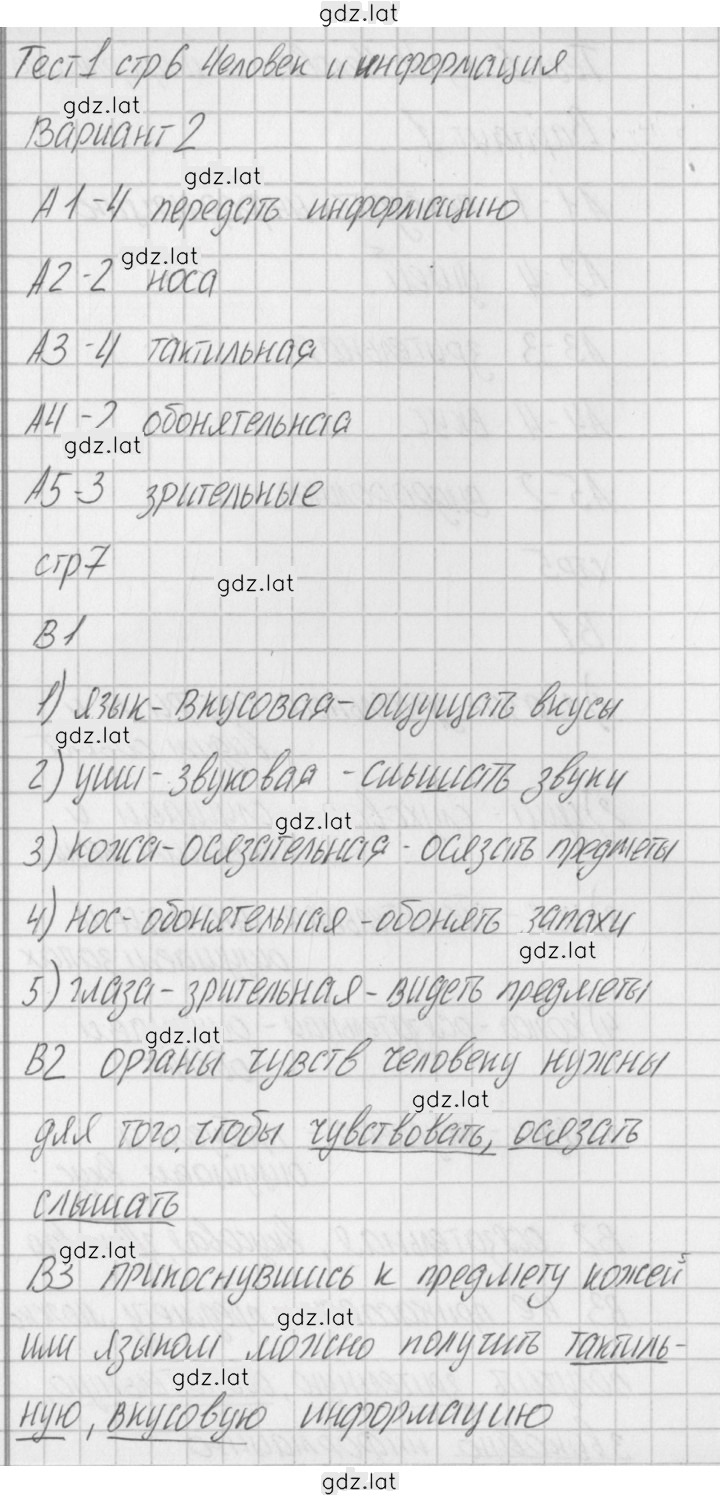 gdz.lat
Тест 1 стр 6 Человек и информация
gdz.lat
Вариант 2
gdz.lat
А1-4 передать информацию
gdz.lat
А2-2 носа
А3-4 тактильная
А4-2 обонятельная
gdz.lat
А5-3 зрительные
стр 7
gdz.lat
В1
1) язык- вкусовая- ощущать вкусы
gdz.lat
2) уши- звуковая -слышать звуки
gdz.lat
3) кожа- осязательная - осязать предметы
4) нос- обонятельная -обонять запахи
gdz.lat
5) глаза- зрительная- видеть предметы
gdz.lat
В2 органы чувств человеку нужны
gdz.lat
для того, чтобы чувствовать, осязать
слышать
gdz.lat
В3 прикоснувшись к предмету кожей
gdz.lat
или языком можно получить тактиль-
gdz.lat
ную, вкусовую информацию
gdz.lat